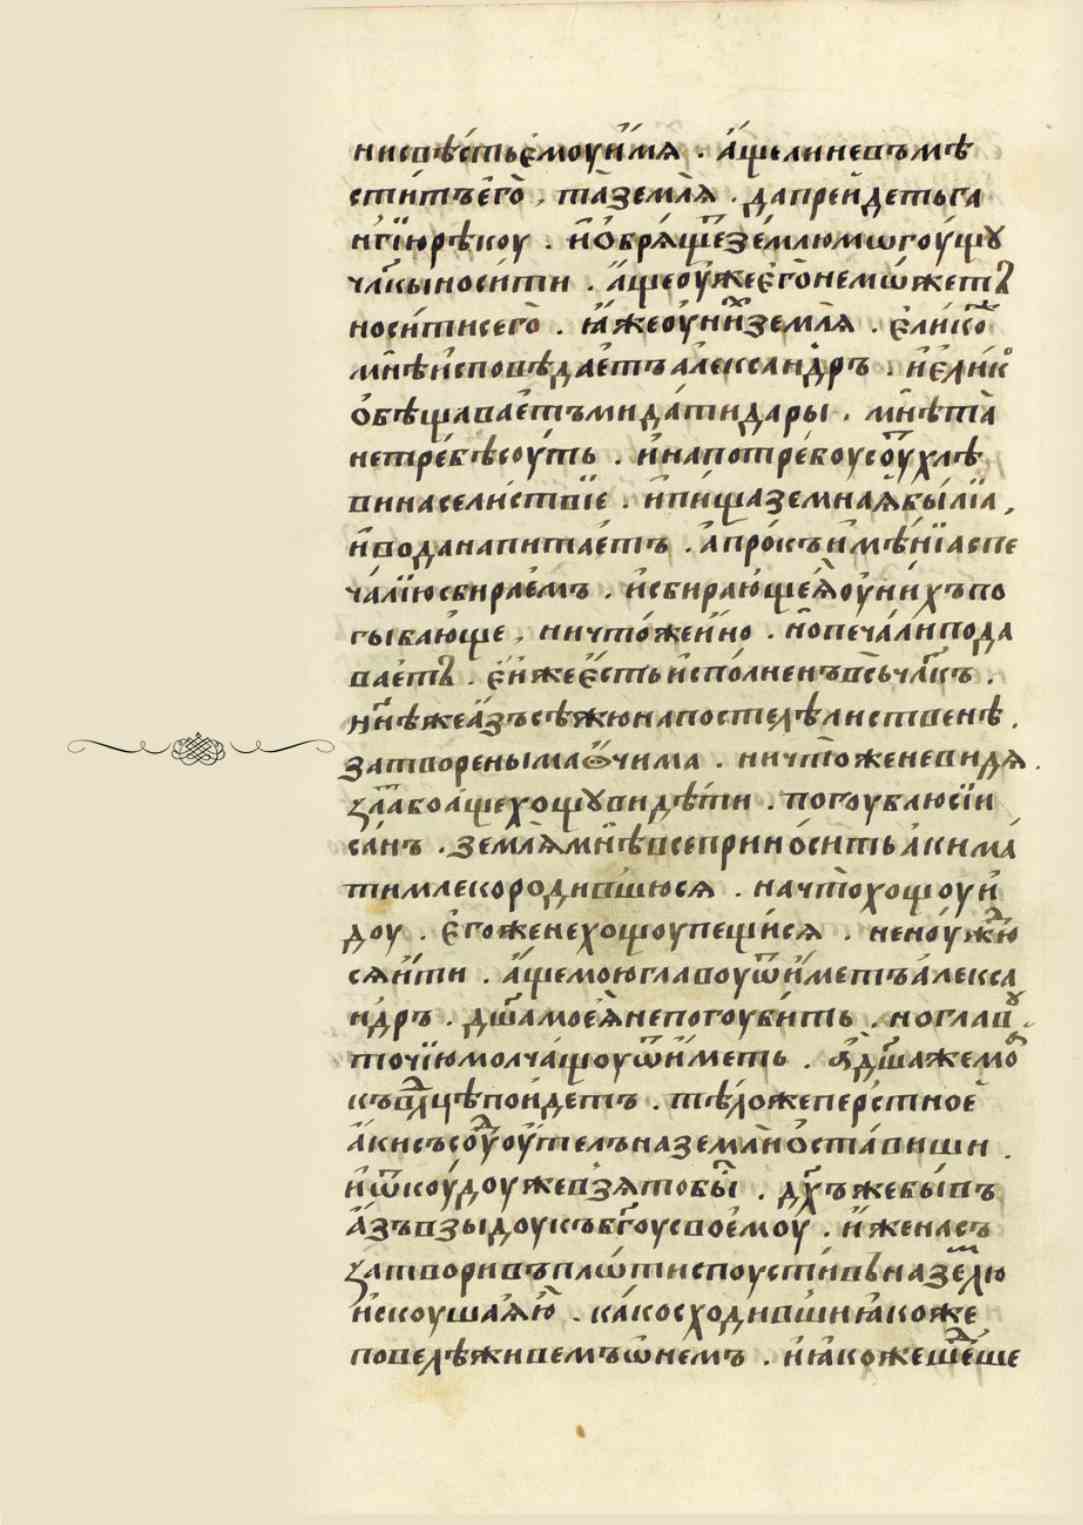 нисвѣ́стьє҆моуи҆́мѧ . а҆́щелиневъмѣ
сти́тъе҆го̀ , та̀землѧ̀ . дапрейдетьга
нгі́юрѣкоу . и҆ѡ҆брѧ́щеⷮзе́млюмѡгоу́щꙋ
чл҃кыноси́ти . а҆́щеоу҆́жее҆го̀немѡ́жетъ
носи́тисего̀ . ꙗ҆́жеоу҆ни́ⷯземлѧ̀ . е҆ли́коⷤ
мнѣ̀и҆сповѣ́дае҆тъа҆леѯа́ндръ . и҆е҆ли́кѡ
ѡ҆бѣщавае҆тъмида́тидары . мнѣ̀та̀
нетре́бѣсоу́ть . и҆напотре́боусоу́ⷮхлѣ
винасели́ствїе . и҆пи́щаземнаѧ҆бы́лїа ,
и҆водапапитае҆тъ . а҆про́къи҆мѣ́нїаспе
ча́лїюсбирае҆мъ . и҆сбираю́щеѧ҆оу҆ни́хъпо
гываю́ще , ничто́жеи҆но . но̀печа́липода
вае҆тъ . е҆́ѝжее҆́стьи҆спо́лненъвсьчл҃къ .
нн҃ѣжеа҆́зъсѣжюнапостелѣлиственѣ .
затвореныма̀ѻ҆чи́ма . ничто̀женевидѧ .
злаⷮ҇воа҆́щехощꙋвидѣ́ти . погоублюсїи
са́нъ . землѧ̀мнѣ̀всеприно́ситьа҆кима́
тимлекороди́вшюсѧ . начто̀хощоуи҆
доу . е҆гоженехощоупещи́сѧ . нено́ужⷣю
сѧи҆ти́ . а҆́щемоюглавоуѿи҆́метъа҆леѯа
ндръ . дш҃амоеѧ҆непогоуби́ть . ноглавꙋ
точї́юмолча́щоуѿи҆́меть . а҆дш҃ажемоѧ
къвлⷣцѣпои́деть . тѣ́ложепе́рстное
а҆́кисъсоⷣуоу҆́телъназемлѝѡ҆ста́виши .
и҆ѿкоу́доужевзѧтобы́ⷭ҇ . дх҃ъжебы́въ
а҆́зъвзы́доукъбг҃оусвое҆моу́ . и҆́женасъ
затвори́въпло́тиспоусти́въназемⷧ҇ю
и҆скоуша́ѧѝ . ка́косходи́вшиꙗ҆коже
повелѣживемъѡ҆немъ . и҆ꙗ҆кожешеⷣше